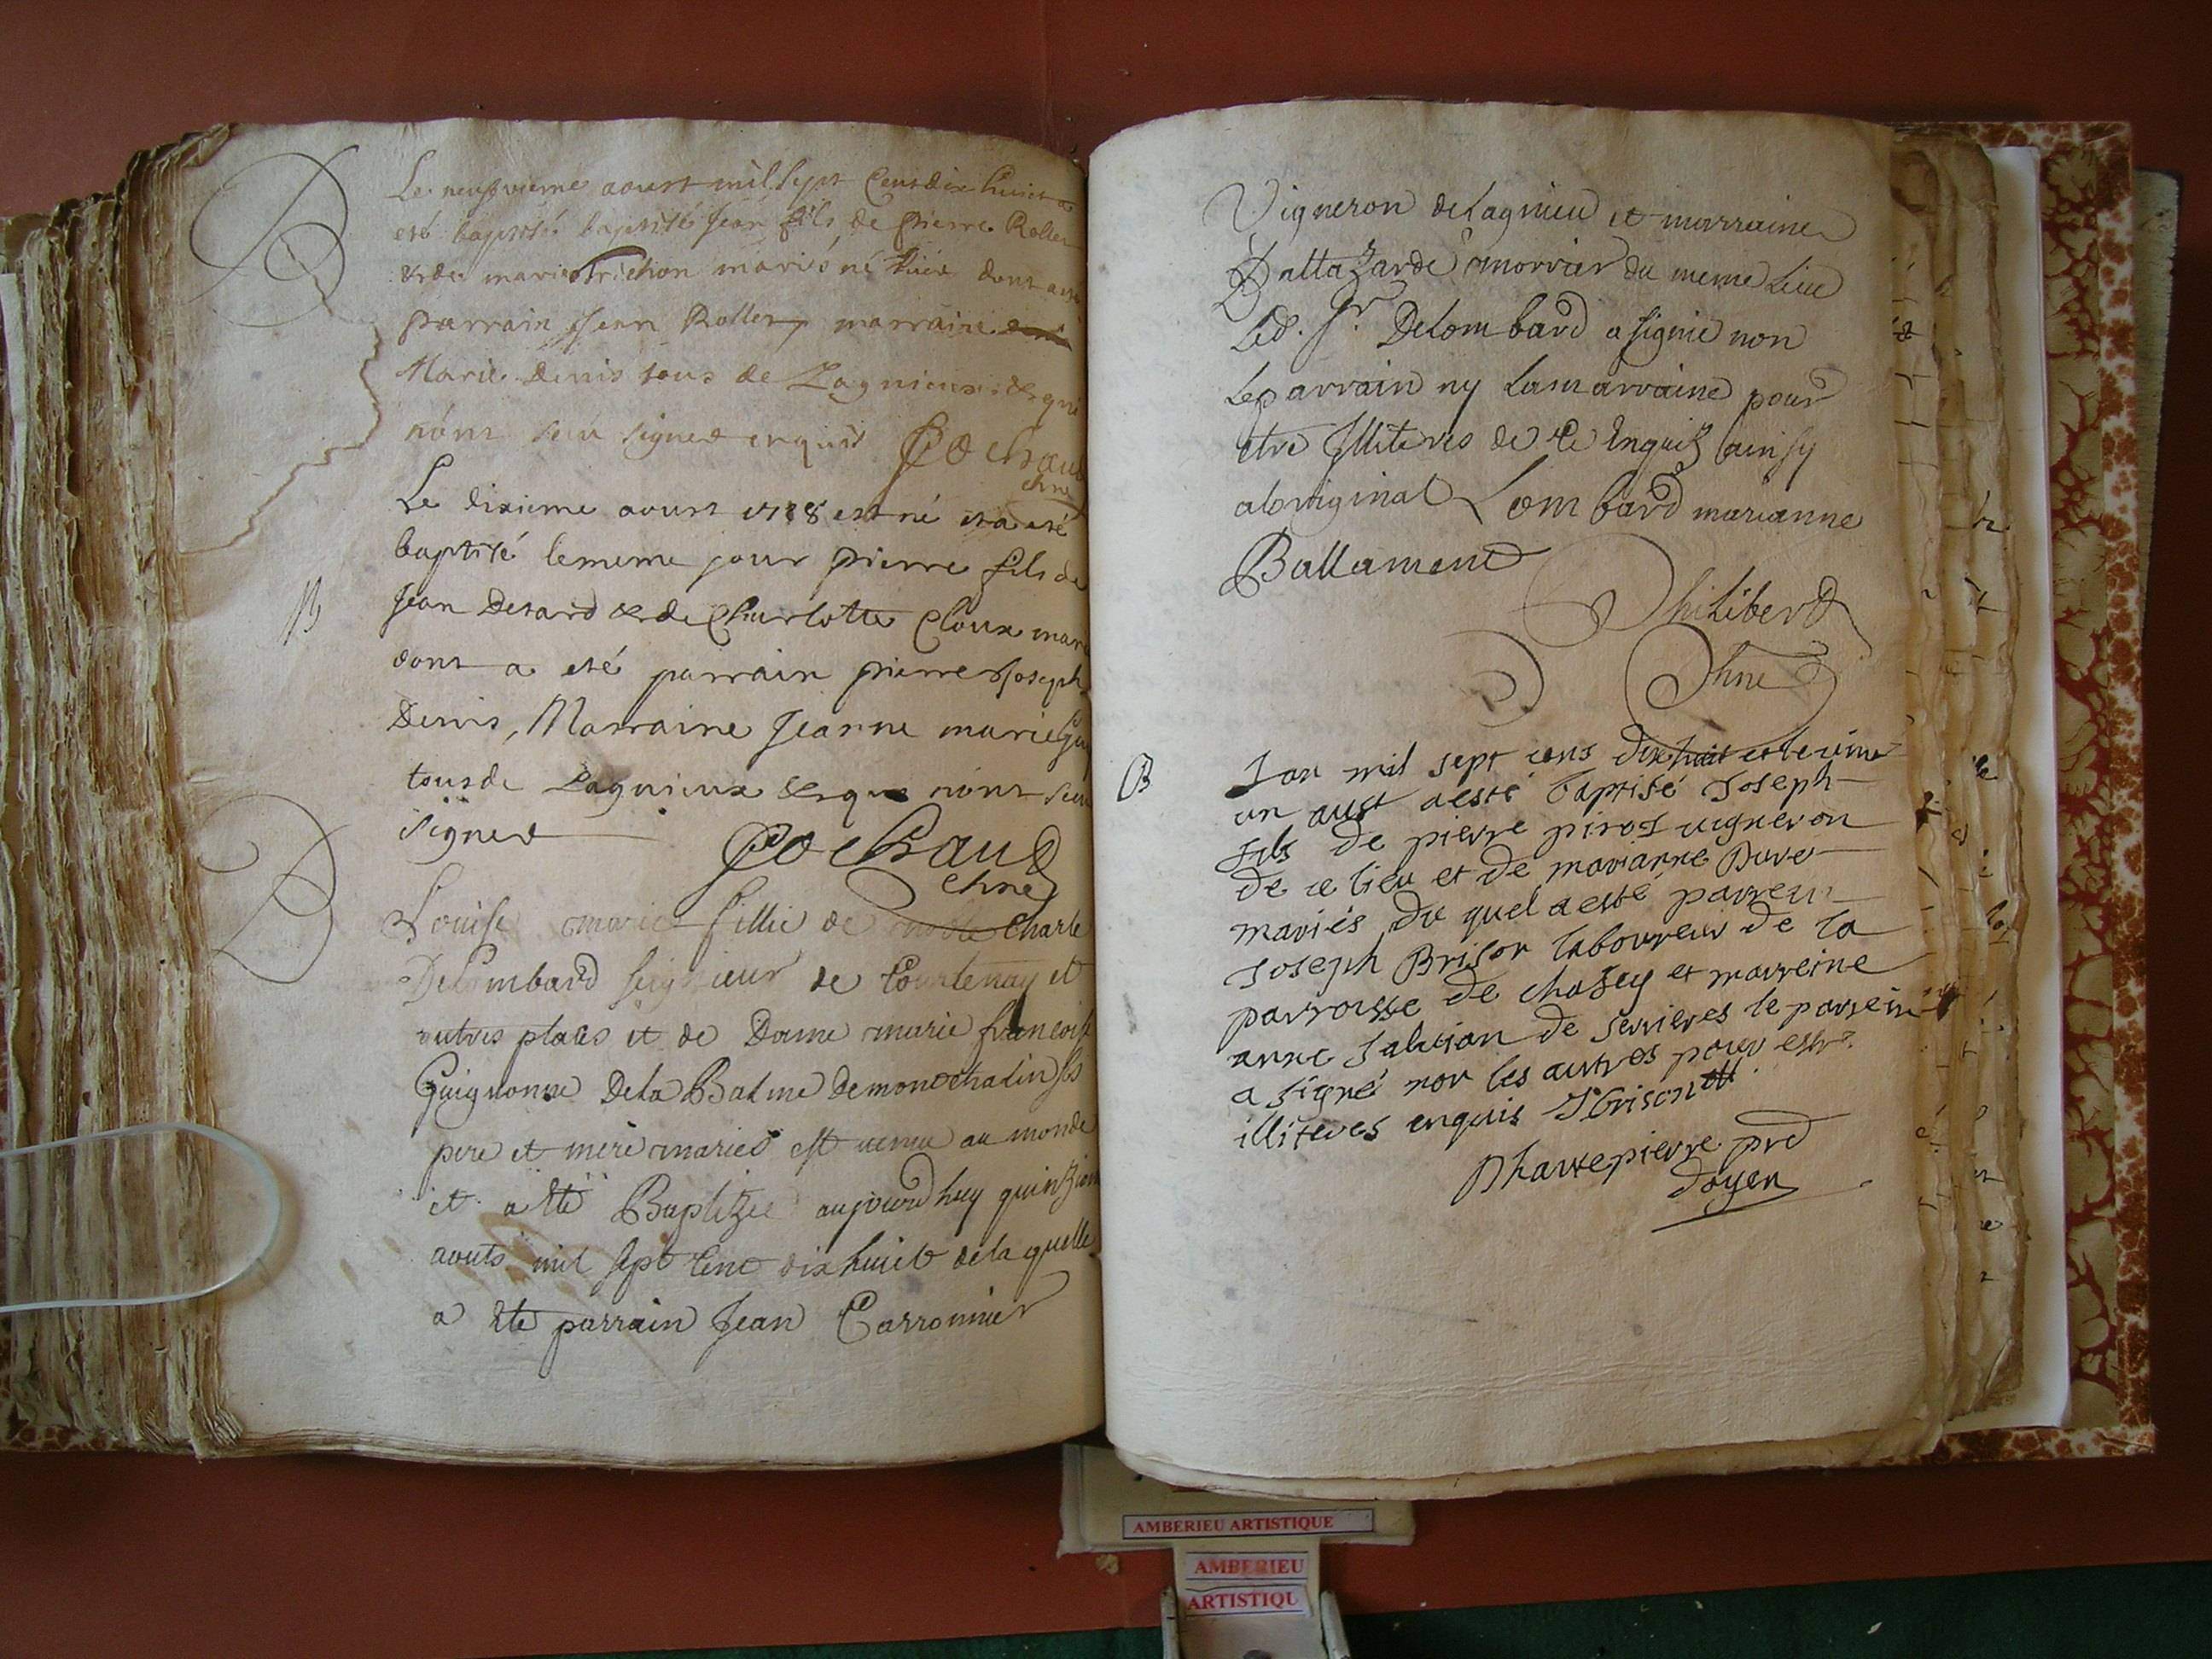 B
Le neufvieme aoust mil sept cent dix huict a
eté baptisé baptisé Jean fils de pierre Rollet
& de marie Trichon mariés né hier dont a eté
parrain Jean Rollet, marraine
Marie Denis tous de Lagnieux & qui
n'ont seu signer enquis Pochaud
chne
B
Le dixieme aoust 1718 est né et a eté
baptisé le meme jour pierre fils de
Jean Detard & de Charlotte Cloux mari
dont a eté parrain pierre Joseph
Denis, Marraine Jeanne marie
tous de Lagnieux & qui n'ont seu
signer
Pochaud
chne
B
Louise marie fillie de noble Charle
Delombard seignieur de Courtenay et
autres places et de Dame marie francoise
Guignonne De la Balme de montchalin ses
pere et mere mariés est venue au monde
et a ete Baptizée aujourdhuy quinzieme
aouts mil sept cent dix huict de la quelle
a ete parrain Jean Carronnier
Vigneron de Lagnieu et marraine
Baltazarde morrier du meme Lieu
Led. Sr. Delombard a signié non
Le parrain ny La marraine pour
etre Illiteres de ce Enquis ainsy
a loriginal Lombard marianne
Ballament
Philiberd
Chne
B
Lan mil sept cens dix huit et le vint
un aust a esté baptisé Joseph
fils de pierre pirot vigneron
de ce lieu et de marianne Dure
mariés du quel a esté parrein
Joseph Brison laboureur de la
parroisse de chasey et marreine
anne Jalurian de Serrieres le parrein
a signé non les autres pour estre
illiteres enquis J brison
Dharepierre prd
doyen
AMBERIEU ARTISTIQUE
AMBERIEU
ARTISTIQU